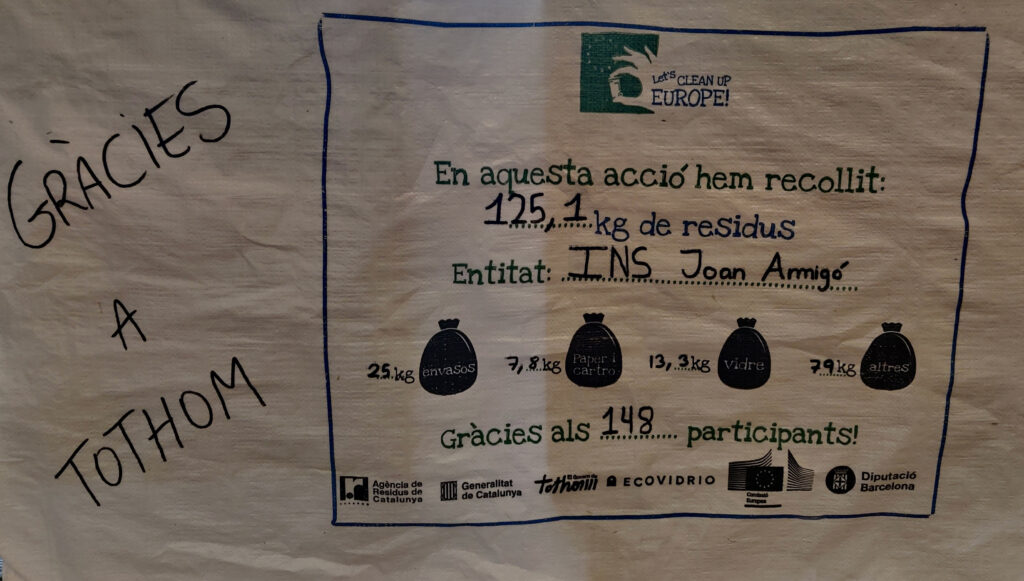 GRÀCIES
A
TOTHOM
Let's CLEAN UP
EUROPE!
En aquesta acció hem recollit:
125,1 kg de residus
Entitat: INS Joan Amigó
25 kg envasos
7,8 kg Paper i cartró
13,3 kg vidre
79 kg altres
Gràcies als 148 participants!
Agència de
Residus de
Catalunya
Generalitat
de Catalunya
tothom
ECOVIDRIO
Comissió
Europea
Diputació
Barcelona